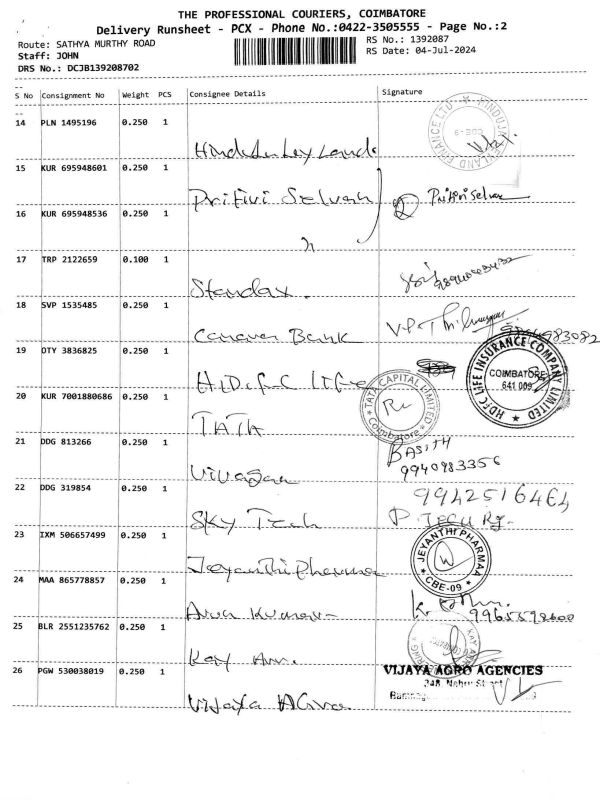 THE PROFESSIONAL COURIERS, COIMBATORE
Delivery Runsheet - PCX - Phone No.:0422-3505555 - Page No.:2
Route: SATHYA MURTHY ROAD
RS No.: 1392087
Staff: JOHN
RS Date: 04-Jul-2024
DRS No.: DCJB139208702
S No Consignment No Weight PCS Consignee Details Signature
14 PLN 1495196 0.250 1
15 KUR 695948601 0.250 1
Pritivi Selvan
16 KUR 695948536 0.250 1
17 TRP 2122659 0.100 1
18 SVP 1535485 0.250 1
Canara Bank
19 OTY 3836825 0.250 1
H.D.f.C life
HDFC LIFE INSURANCE COMPANY LIMITED
COIMBATORE
641 009
20 KUR 7001880686 0.250 1
TATA
TATA CAPITAL LIMITED
Coimbatore
21 DDG 813266 0.250 1
BASITH
9940983356
22 DDG 319854 0.250 1
Sky Tech
9942516464
23 IXM 506657499 0.250 1
Jeyanthi Pharma
JEYANTHI PHARMAA
CBE-09
24 MAA 865778857 0.250 1
Arun Kumar
25 BLR 2551235762 0.250 1
26 PGW 530038019 0.250 1
Vijaya Agro
VIJAYA AGRO AGENCIES